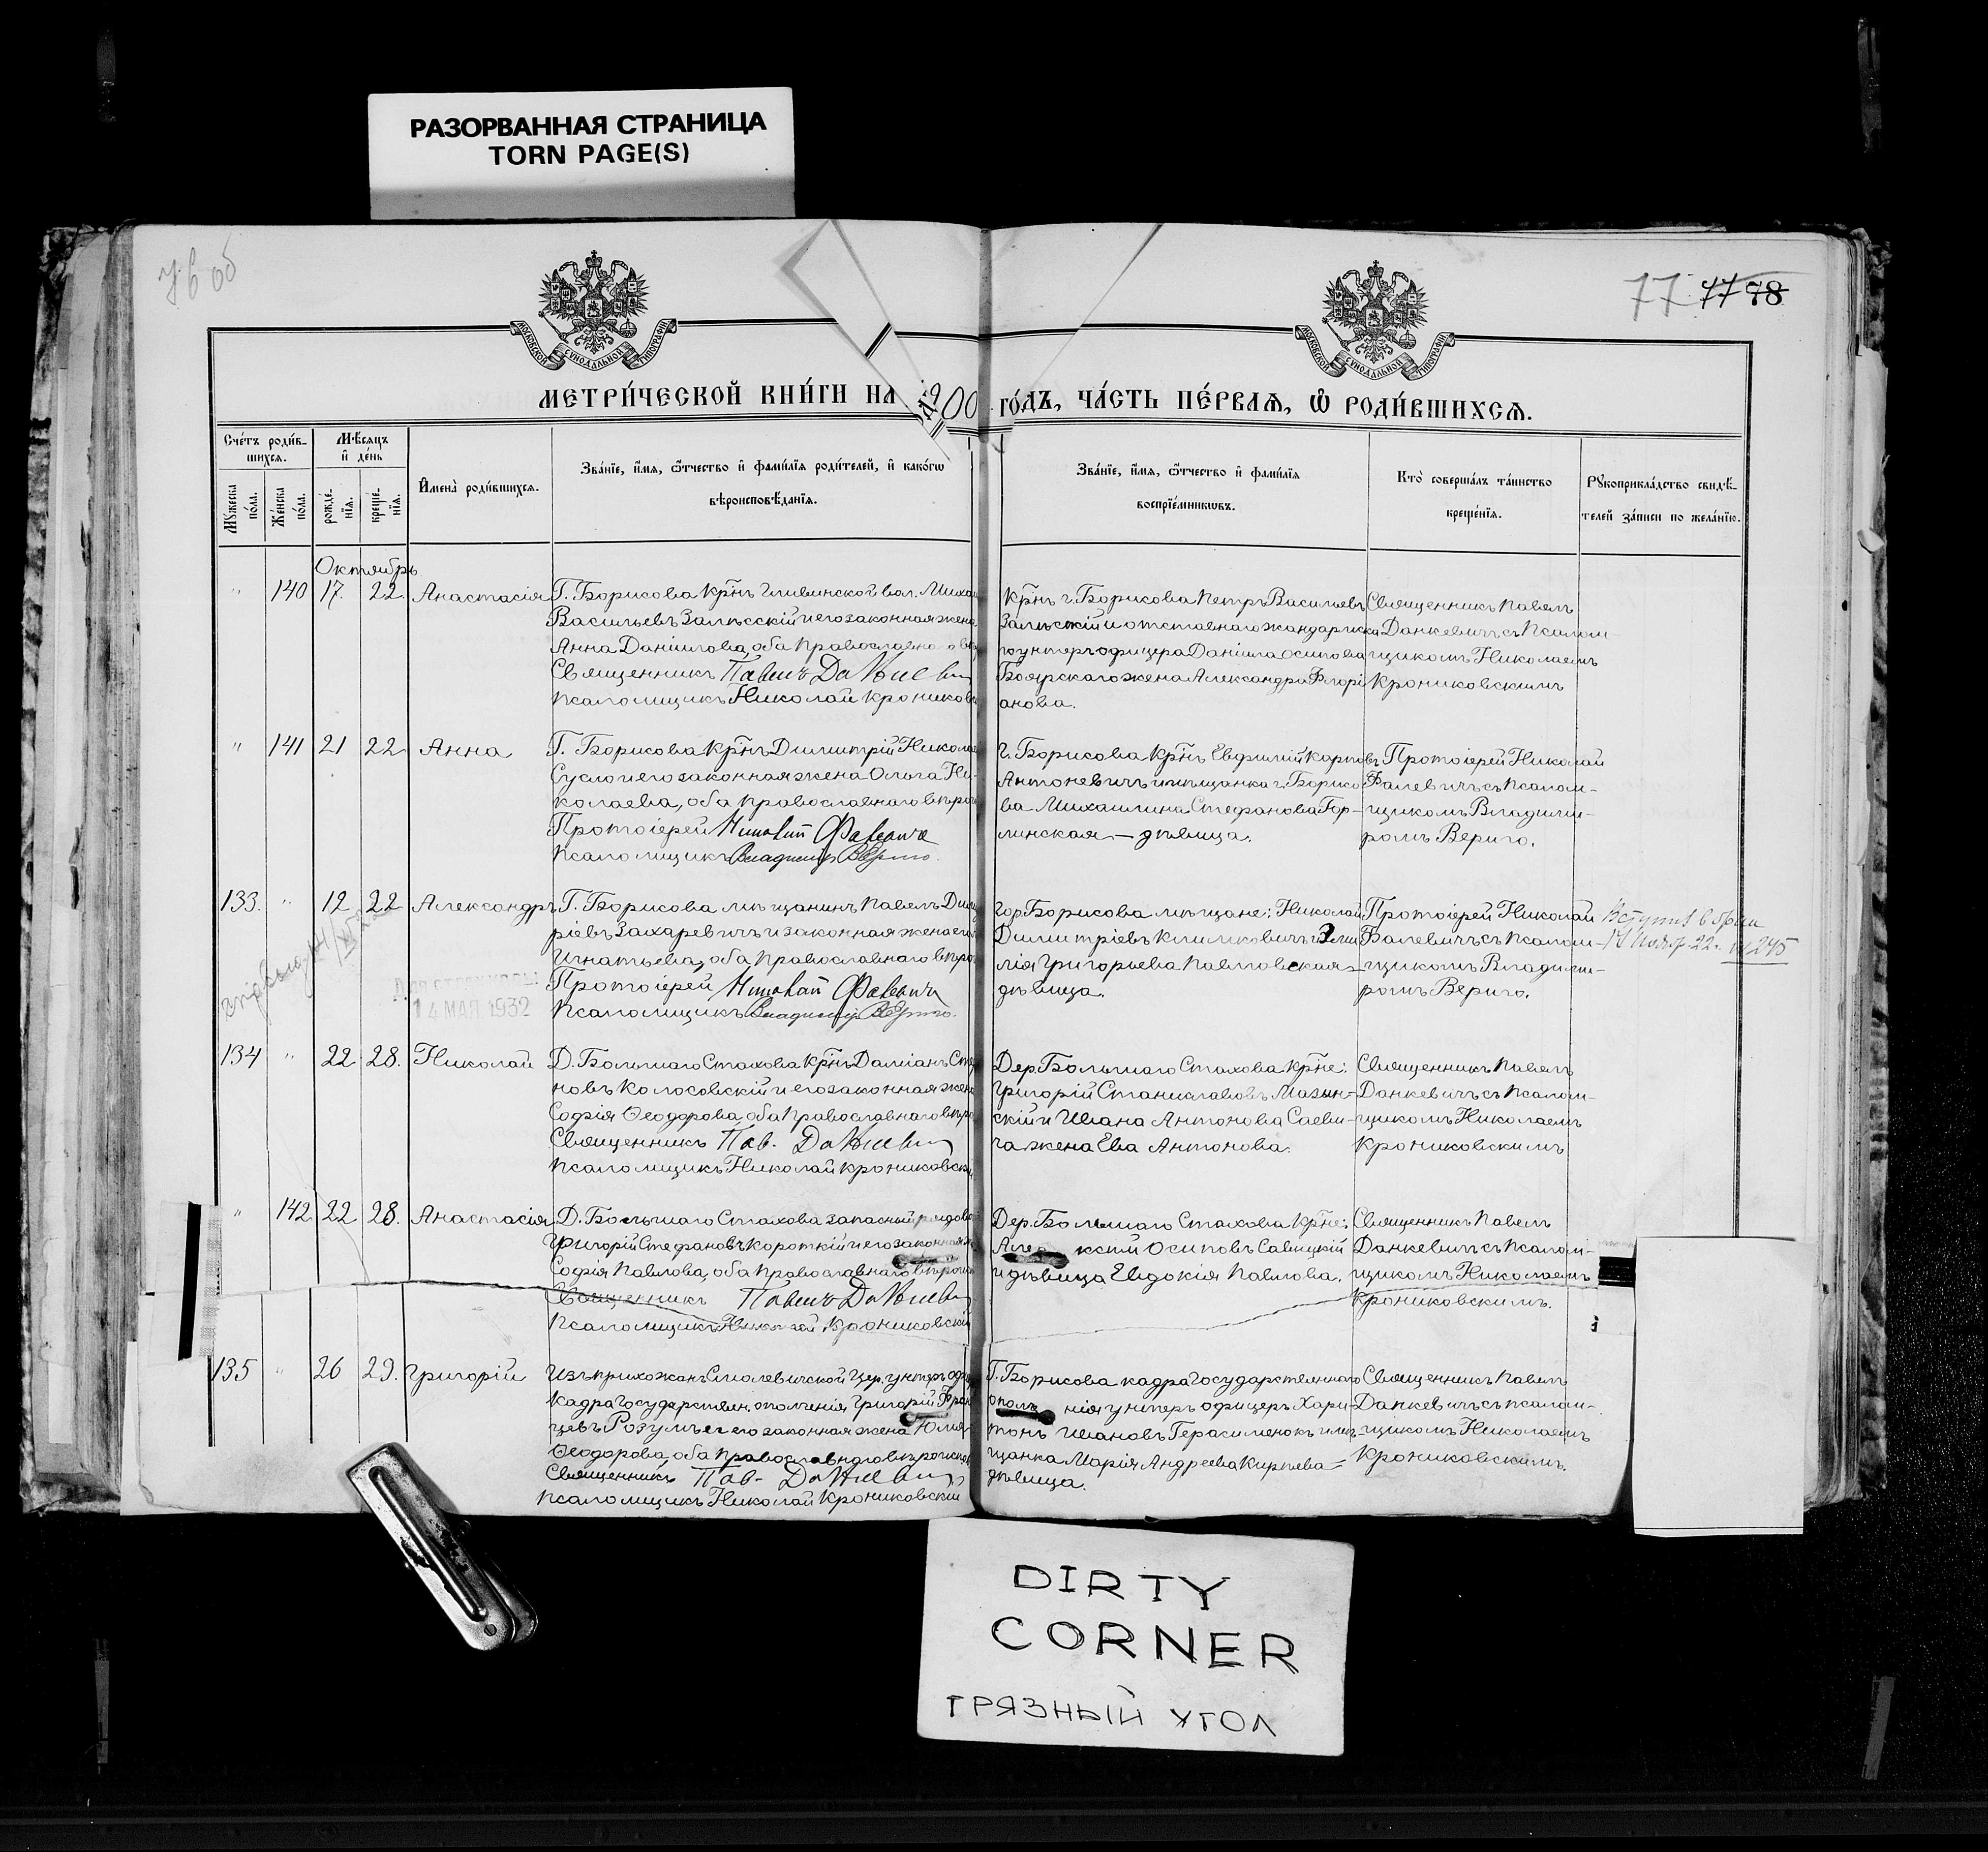 РАЗОРВАННАЯ СТРАНИЦА
TORN PAGE(S)
76 об
77 77 78
МОСКОВСКОЙ СѴНОДАЛЬНОЙ ТИПОГРАФІИ
МОСКОВСКОЙ СѴНОДАЛЬНОЙ ТИПОГРАФІИ
МЕТРИ́ЧЕСКОЙ КНИ́ГИ НА 1900 ГО́ДЪ, ЧА́СТЬ ПЕ́РВАЯ, Ѡ РОДИ́ВШИХСЯ.
Сче́тъ роди́в-
шихся.
Мѣ́сяцъ
и де́нь
Му́жеска по́ла.
Же́нска по́ла.
рожде́-нїя.
креще́-нїя.
Имена̀ роди́вшихся.
Зва́нїе, и́мя, ѻ́тчество и фами́лїя роди́телей, и како́гѡ
вѣроисповѣ́данїя.
Зва́нїе, и́мя, ѻ́тчество и фами́лїя
воспрїе́мникѡвъ.
Кто̀ соверша́лъ та́инство
креще́нїя.
Рꙋкоприкла́дство свидѣ́-
телей за́писи по жела́нїю.
Октябрь
" 140 17. 22. Анастасія
Г. Борисова кр͠нъ вол.
Васильевъ Залѣсскій и его законная жена
Анна Даніилова, оба Православно
Священникъ Павелъ Данкевичъ
Псаломщикъ Николай Крониковс
Кр͠нъ г. Борисова Петръ Васильевъ
Залѣсскій и отставнаго жандармска
го унтеръ офицера Даніила Осипова
Боярскаго жена Александра Флорі
анова.
Священникъ Павелъ
Данкевичъ съ Псалом-
щикомъ Николаемъ
Крониковскимъ
" 141 21 22 Анна
Г. Борисова кр͠нъ Димитрій Никола
Сусло и его законная жена Ольга Ни-
колаева, оба православнаго вѣро
Протоіерей Николай Фалевичъ
Псаломщикъ Владиміръ Вериго.
г. Борисова кр͠нъ Евфимій Карповъ
Антоневичъ и мѣщанка г. Борисо
ва Михалина Стефанова Гор-
линская – дѣвица.
Протоіерей Николай
Фалевичъ съ Псалом-
щикомъ Владими-
ромъ Вериго.
133. " 12 22 Александръ
Г. Борисова мѣщанинъ Павелъ Дими
ріевъ Захаревичъ и законная жена его
Игнатьева, оба православнаго вѣро
Протоіерей Николай Фалевичъ
Псаломщикъ Владиміръ Вериго.
14 МАЯ 1932
Гор. Борисова мѣщане: Николай
Димитріевъ Климковичъ и Эми
лія Григорьева Павловская –
дѣвица.
Протоіерей Николай
Фалевичъ съ Псалом-
щикомъ Владими-
ромъ Вериго.
22. № 245
134 " 22 28. Николай
Д. Большаго Стахова кр͠нъ Даміанъ Сте
новъ Колосовскій и его законная жена
Софія Ѳеодорова, оба Православнаго вѣро
Священникъ Пав. Данкевичъ
Псаломщикъ Николай Крониковскі
Дер. Большаго Стахова кр͠не:
Григорій Станиславовъ Мазын-
скій и Ивана Антонова Саеви-
ча жена Ева Антонова.
Священникъ Павелъ
Данкевичъ съ Псалом-
щикомъ Николаемъ
Крониковскимъ
" 142 22 28. Анастасія
Д. Большаго Стахова запасный рядово
Григорій Стефановъ Короткій и его законная
Софія Павлова, оба Православнаго вѣрои
Священникъ Павелъ Данкевичъ
Псаломщикъ Николай Крониковскій
Дер. Большаго Стахова кр͠не:
Але ксѣй Осиповъ Савицкій
и дѣвица Евдокія Павлова.
Священникъ Павелъ
Данкевичъ съ Псалом-
щикомъ Николаемъ
Крониковскимъ.
135 " 26 29. Григорій
Изъ прихожанъ Смолевичской цер. унтеръ оф
кадра Государствен. ополченія Григорій Фран
цевъ Розумъ и его законная жена Юлія
Ѳеодорова, оба православнаго вѣроиспов
Священникъ Пав. Данкевичъ
Псаломщикъ Николай Крониковскій
Г. Борисова кадра Государственнаго
ополч нія унтеръ офицеръ Хари-
тонъ Ивановъ Герасименокъ и мѣ-
щанка Марія Андреева Кирѣева –
дѣвица.
Священникъ Павелъ
Данкевичъ съ псалом-
щикомъ Николаемъ
Крониковскимъ.
DIRTY
CORNER
ГРЯЗНЫЙ УГОЛ